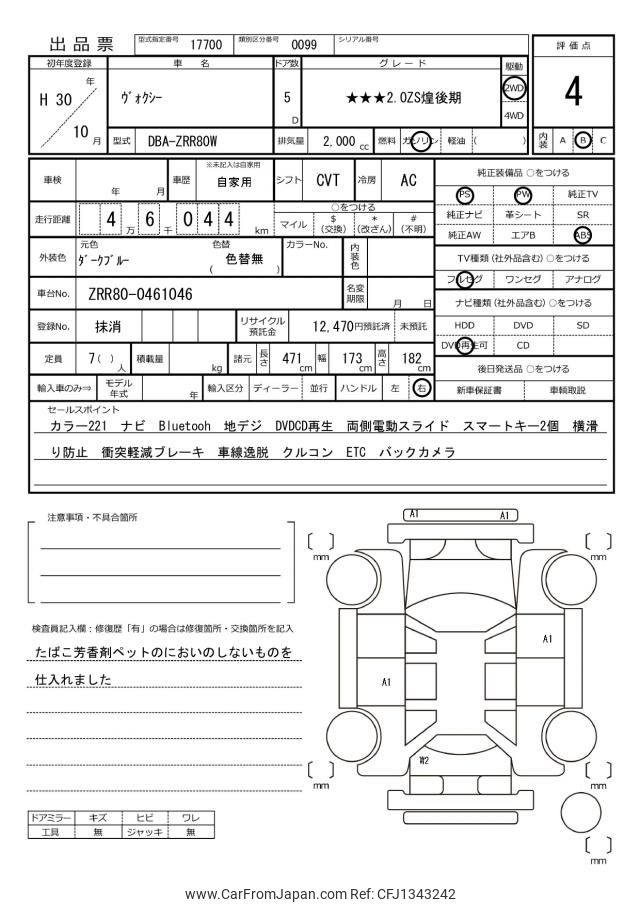 出品票
型式指定番号 17700 類別区分番号 0099 シリアル番号
評価点
初年度登録 車名 ドア数 グレード 駆動
H 30 年 ヴォクシー 5 D ★★★2.0ZS煌後期 2WD 4
10 月 4WD
型式 DBA-ZRR80W 排気量 2,000 cc 燃料 ガソリン 軽油 ( ) 内装 A B C
車検 年 月 車歴 ※未記入は自家用 自家用 シフト CVT 冷房 AC
純正装備品 ○をつける
PS PW 純正TV
純正ナビ 革シート SR
純正AW エアB ABS
走行距離 4 万 6 千 0 4 4 km
○をつける
マイル $ (交換) * (改ざん) # (不明)
外装色 元色 ダークブルー 色替 ( 色替無 ) カラーNo. 内装色
TV種類(社外品含む) ○をつける
フルセグ ワンセグ アナログ
車台No. ZRR80-0461046 名変期限 月 日
ナビ種類(社外品含む) ○をつける
HDD DVD SD
DVD再生可 CD
登録No. 抹消 リサイクル預託金 12,470円預託済 未預託
定員 7( ) 人 積載量 kg 諸元 長さ 471 cm 幅 173 cm 高さ 182 cm
後日発送品 ○をつける
新車保証書 車輌取説
輸入車のみ⇒ モデル年式 年 輸入区分 ディーラー 並行 ハンドル 左 右
セールスポイント
カラー221 ナビ Bluetooh 地デジ DVDCD再生 両側電動スライド スマートキー2個 横滑
り防止 衝突軽減ブレーキ 車線逸脱 クルコン ETC バックカメラ
注意事項・不具合箇所
A1 A1
mm mm
検査員記入欄：修復歴「有」の場合は修復箇所・交換箇所を記入
たばこ芳香剤ペットのにおいのしないものを
仕入れました
A1
A1
W2
mm mm
ドアミラー キズ ヒビ ワレ
工具 無 ジャッキ 無
mm
www.CarFromJapan.com Ref: CFJ1343242